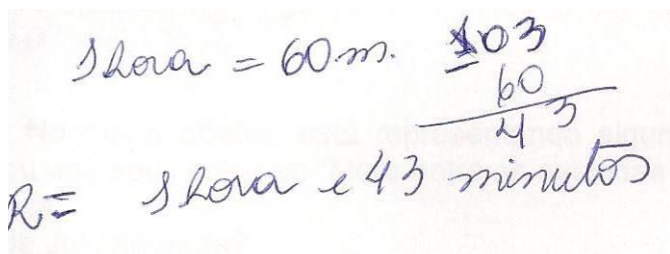 1 hora = 60 m.
103
- 60
43
R = 1 hora e 43 minutos